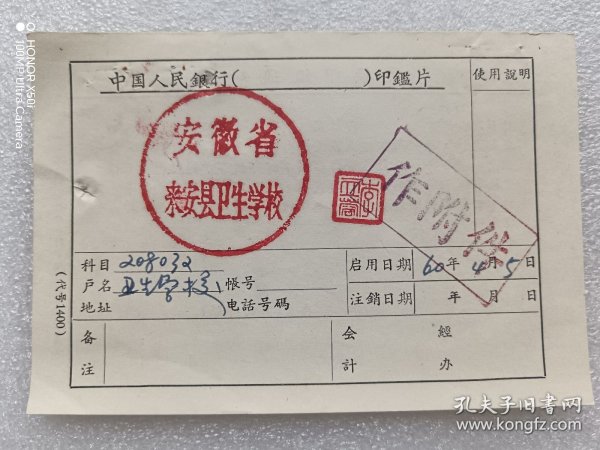 中国人民銀行(　　　)印鑑片
使用説明
安徽省
来安县卫生学校
作附件
科目 208032
户名 卫生学校 帳号
地址 电話号碼
启用日期 60年4月5日
注銷日期 年 月 日
备注
会計
經办
(代号1400)
SHOT ON HONOR X50i
100MP Ultra-Clear Camera
孔夫子旧书网
www.kongfz.com